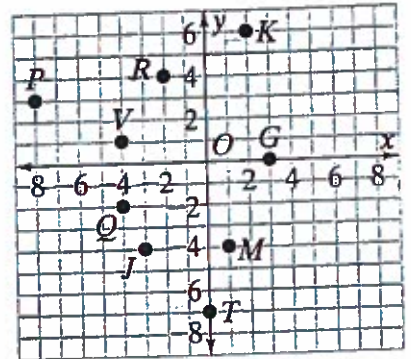 6 y K
P R 4
V 2
O G x
8 6 4 2 2 4 6 8
Q 2
J 4 M
6
T
8